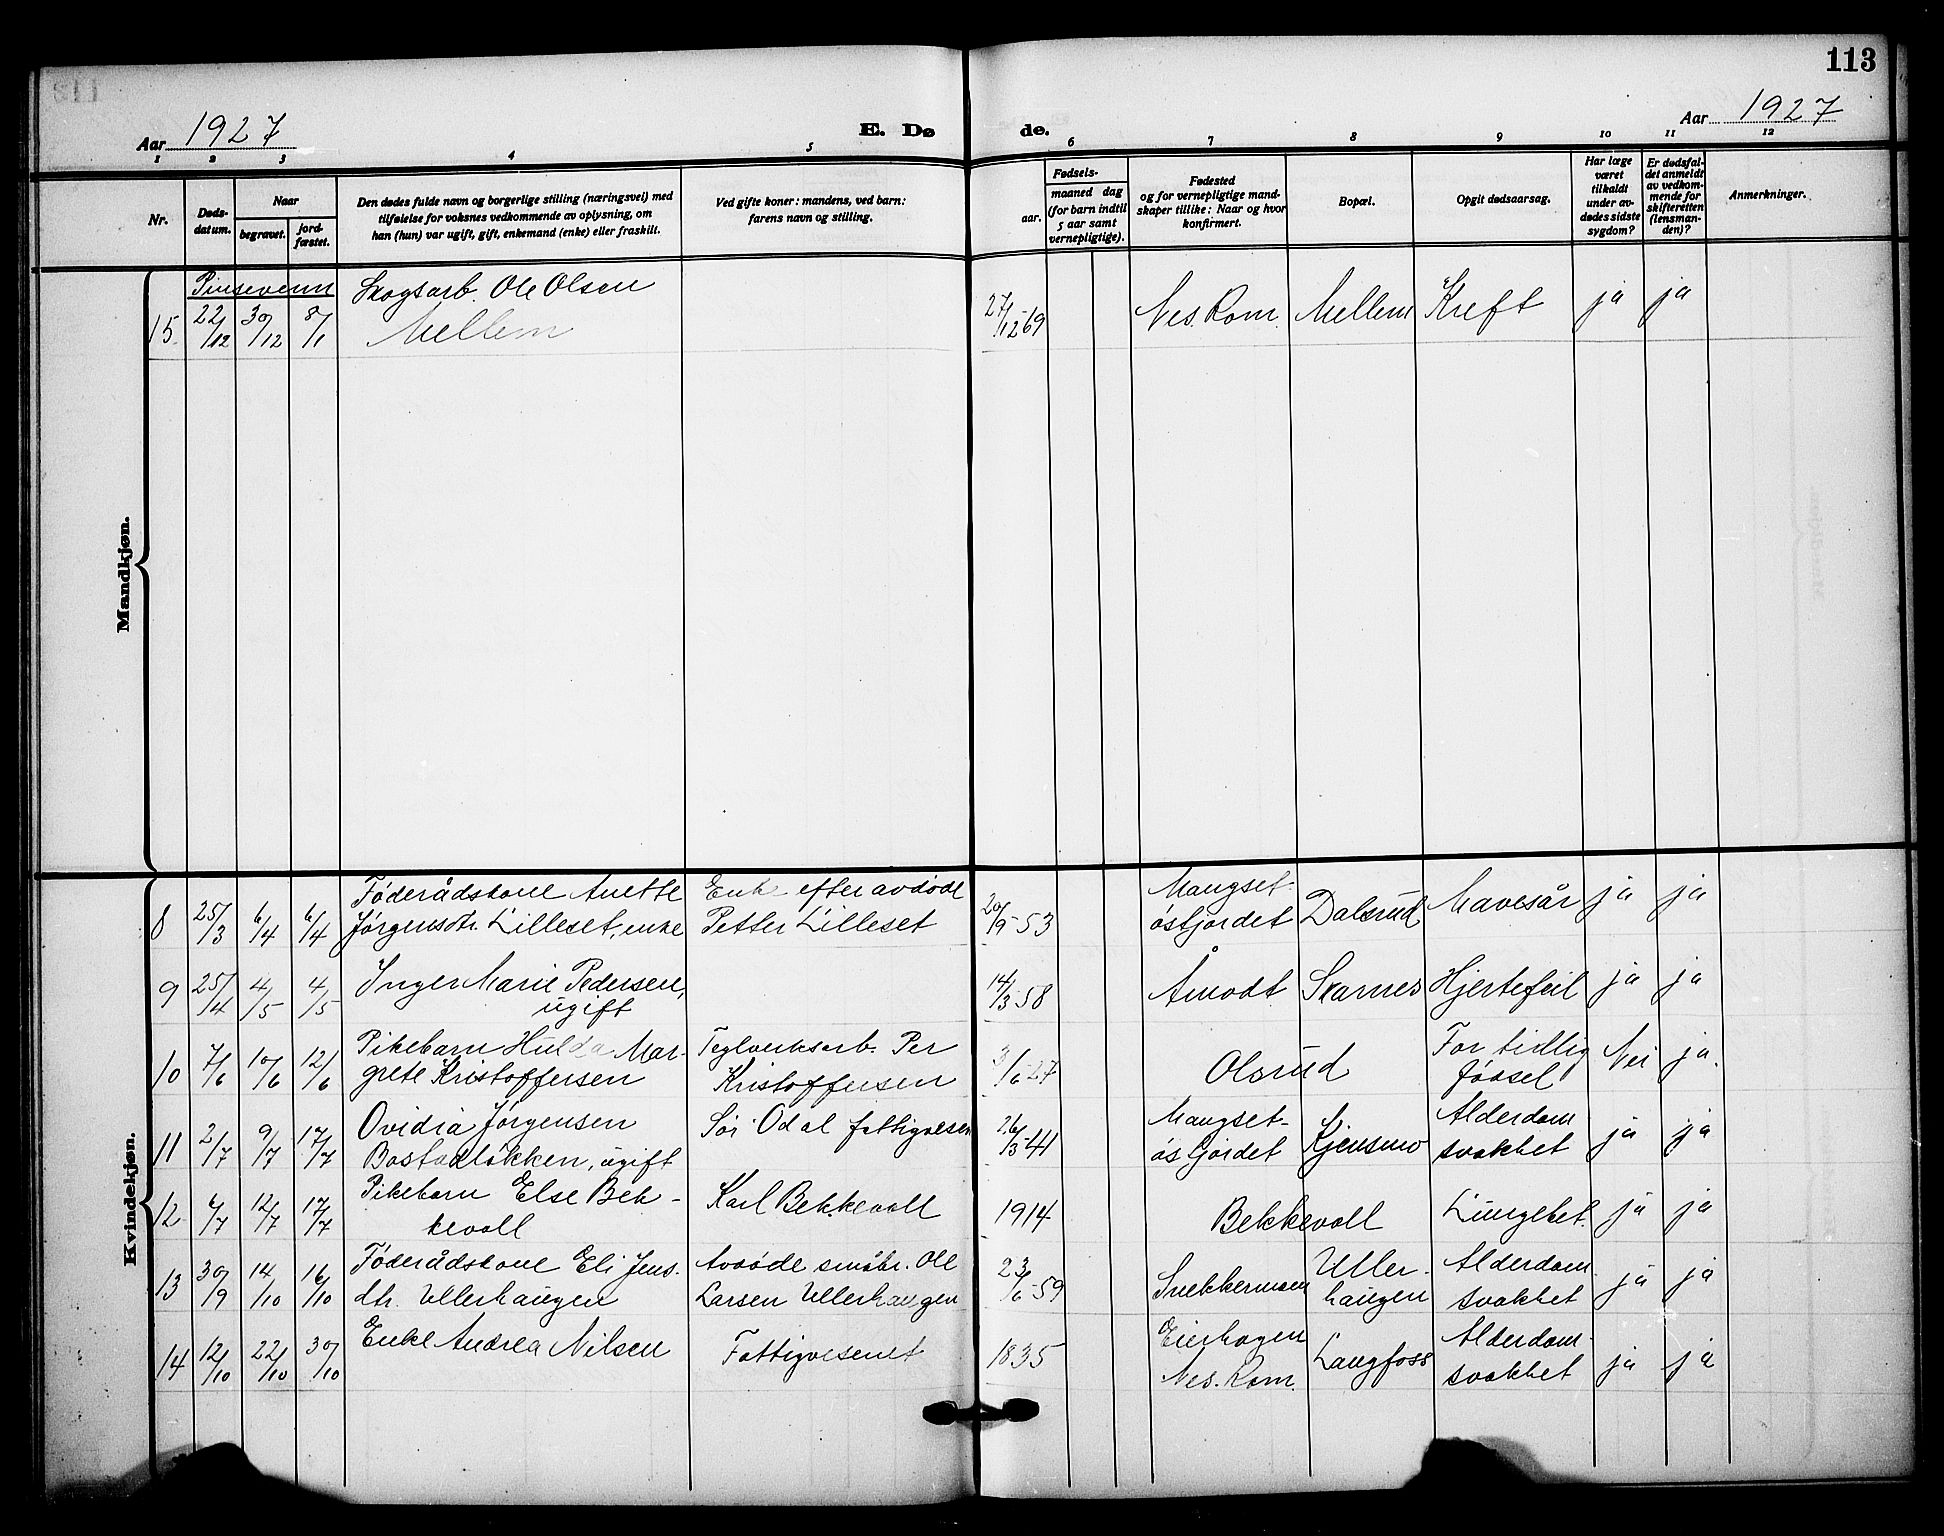 113
Aar 1927
E. Dø
de.
Aar 1927
1 2 3 4 5 6 7 8 9 10 11 12
Nr.
Døds-
datum.
Naar
begravet.
jord-
fæstet.
Den dødes fulde navn og borgerlige stilling (næringsvei) med
tilføielse for voksnes vedkommende av oplysning, om
han (hun) var ugift, gift, enkemand (enke) eller fraskilt.
Ved gifte koner: mandens, ved barn:
farens navn og stilling.
Fødsels-
aar.
maaned dag
(for barn indtil
5 aar samt
vernepligtige).
Fødested
og for vernepligtige mand-
skaper tillike: Naar og hvor
konfirmert.
Bopæl.
Opgit dødsaarsag.
Har læge
været
tilkaldt
under av-
dødes sidste
sygdom?
Er dødsfal-
det anmeldt
av vedkom-
mende for
skifteretten
(lensman-
den)?
Anmerkninger.
Mandkjøn.
Pinsevenn Skogsarb. Ole Olsen
15. 22/12 30/12 8/1 Mellem 27/12-69 Nes. Rom. Mellem Kreft ja ja
Kvindekjøn.
Føderådskone Anette Enke efter avdøde Mangset-
8 25/3 6/4 6/4 Jørgensdtr. Lilleset, enke Petter Lilleset 20/9-53 østjordet Dalsrud Mavesår ja ja
9 25/4 4/5 4/5 Inger Marie Pedersen, 14/3-58 Åmodt Skarnes Hjertefeil ja ja
ugift
Pikebarn Hulda Mar- Teglverksarb. Per For tidlig
10 7/6 10/6 12/6 grete Kristoffersen Kristoffersen 3/6-27 Olsrud fødsel Nei ja.
Ovidia Jørgensen Sør-Odal fattigvesen Mangset- Alderdom
11 2/7 9/7 17/7 Bostadløkken, ugift 26/3-41 østjordet Kjensmo svakhet ja ja
Pikebarn Else Bek-
12 6/7 12/7 17/7 kevoll Karl Bekkevoll 1914 Bekkevoll Lungebet. ja ja
Føderådskone Eli Jens- Avdøde småbr. Ole Uller- Alderdom
13 30/9 14/10 16/10 dtr. Ullerhaugen Larsen Ullerhaugen 23/6-59 Snekkermoen haugen svakhet ja ja
Enke Andrea Nilsen Eierhagen Alderdom-
14 12/10 22/10 30/10 Fattigvesenet 1835 Nes. Rom. Langfoss svakhet ja ja